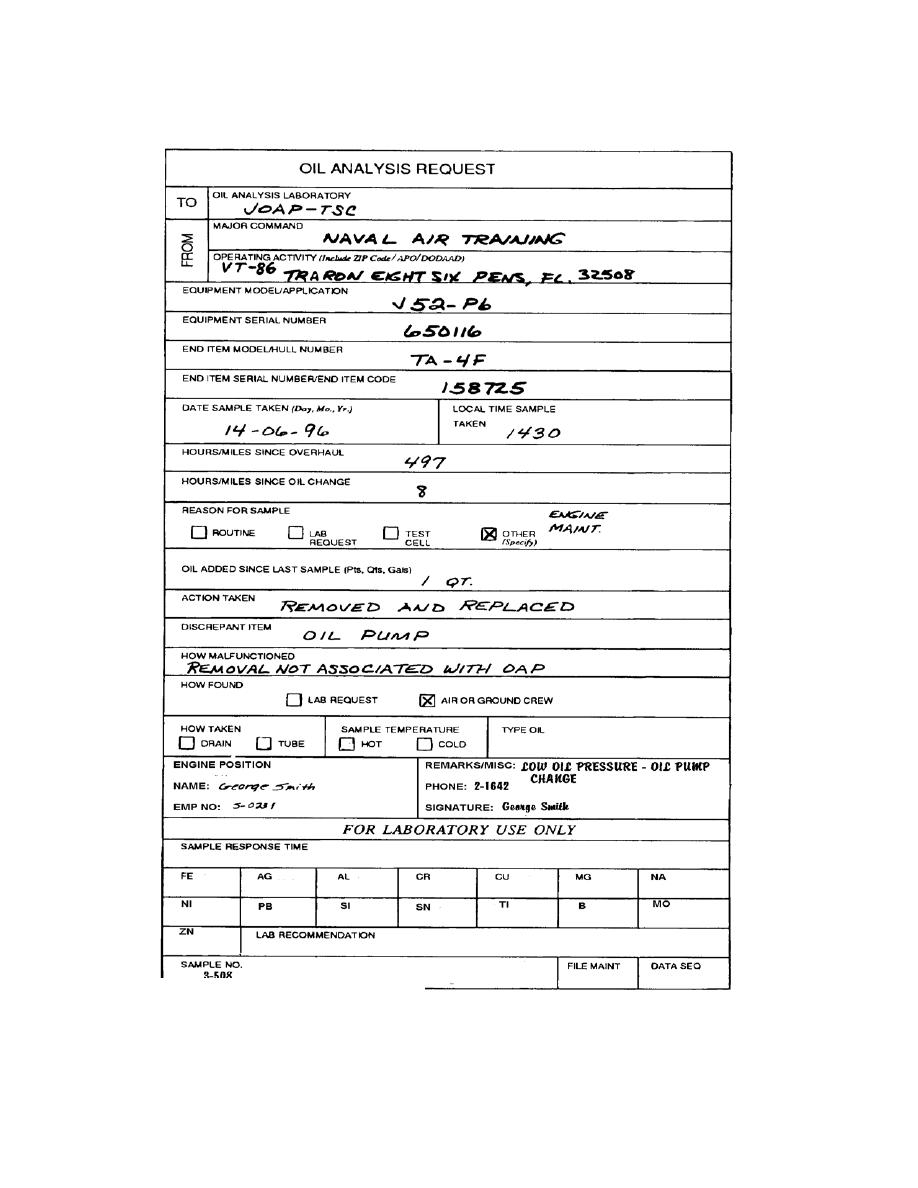 OIL ANALYSIS REQUEST
TO
OIL ANALYSIS LABORATORY
JOAP-TSC
FROM
MAJOR COMMAND
NAVAL AIR TRAINING
OPERATING ACTIVITY (Include ZIP Code/APO/DODAAD)
VT-86 TRARON EIGHT SIX PENS, FL. 32508
EQUIPMENT MODEL/APPLICATION
J52-P6
EQUIPMENT SERIAL NUMBER
650116
END ITEM MODEL/HULL NUMBER
TA-4F
END ITEM SERIAL NUMBER/END ITEM CODE
158725
DATE SAMPLE TAKEN (Day, Mo., Yr.)
14-06-96
LOCAL TIME SAMPLE
TAKEN
1430
HOURS/MILES SINCE OVERHAUL
497
HOURS/MILES SINCE OIL CHANGE
8
REASON FOR SAMPLE
ROUTINE
LAB
REQUEST
TEST
CELL
OTHER
(Specify)
ENGINE
MAINT.
OIL ADDED SINCE LAST SAMPLE (Pts, Qts, Gals)
1 QT.
ACTION TAKEN
REMOVED AND REPLACED
DISCREPANT ITEM
OIL PUMP
HOW MALFUNCTIONED
REMOVAL NOT ASSOCIATED WITH OAP
HOW FOUND
LAB REQUEST
AIR OR GROUND CREW
HOW TAKEN
DRAIN
TUBE
SAMPLE TEMPERATURE
HOT
COLD
TYPE OIL
ENGINE POSITION
NAME: George Smith
EMP NO: S-0231
REMARKS/MISC: LOW OIL PRESSURE - OIL PUMP
CHANGE
PHONE: 2-1642
SIGNATURE: George Smith
FOR LABORATORY USE ONLY
SAMPLE RESPONSE TIME
FE AG AL CR CU MG NA
NI PB SI SN TI B MO
ZN
LAB RECOMMENDATION
SAMPLE NO.
3-508
FILE MAINT
DATA SEQ